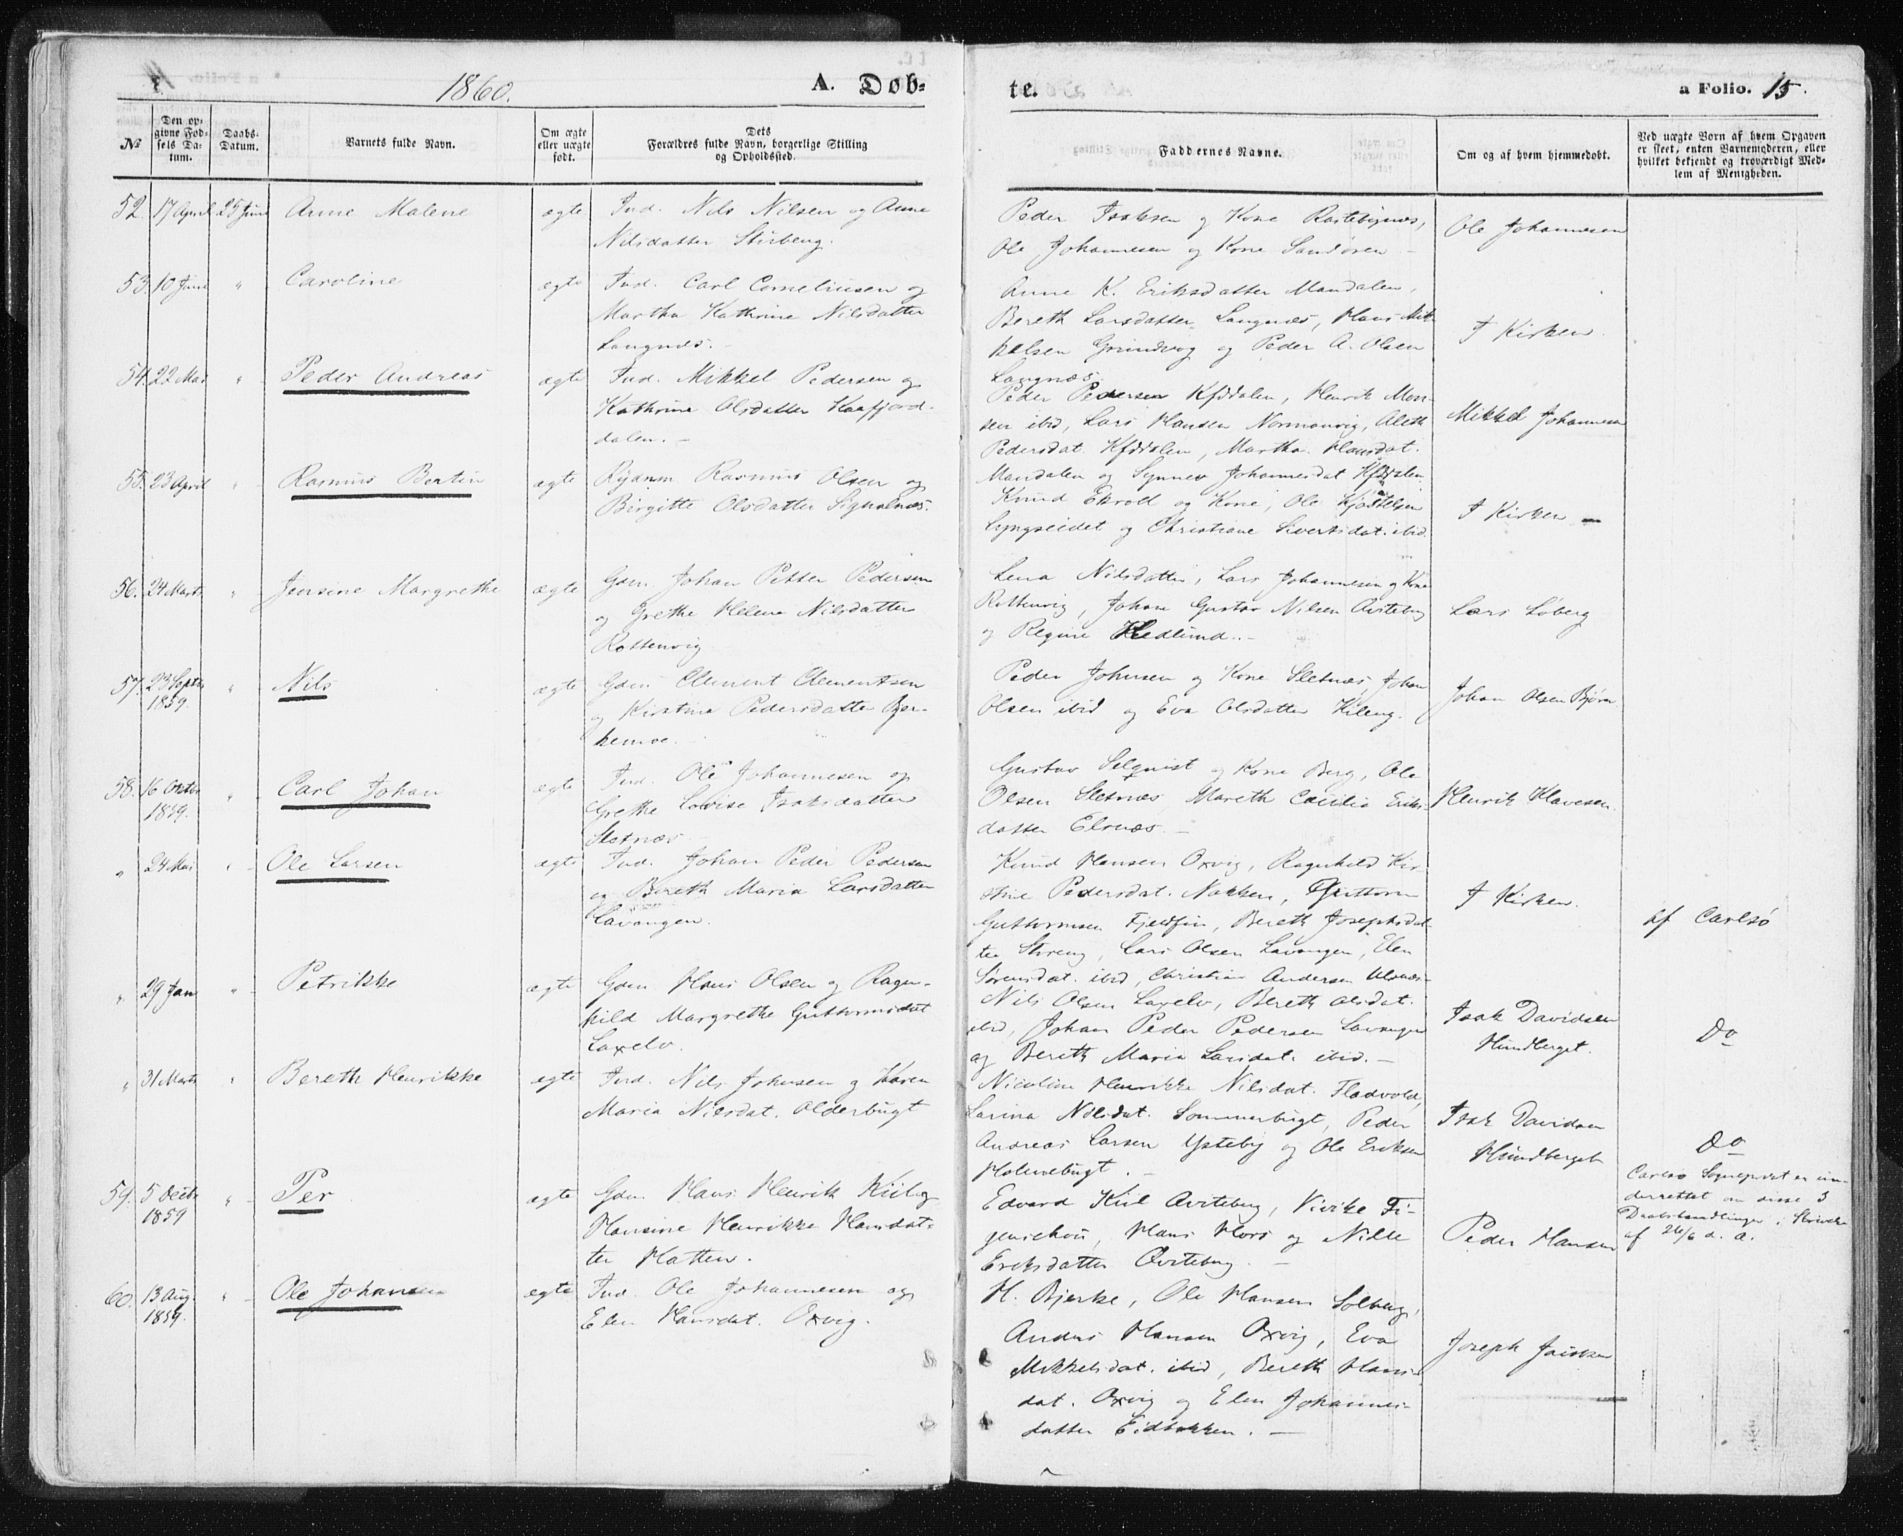 1860.
A. Døb-
№
Den op-
givne Fød-
sels Da-
tum.
Daabs-
Datum.
Barnets fulde Navn.
Om ægte
eller uægte
født.
Dets
Forældres fulde Navn, borgerlige Stilling
og Opholdssted.
52. 17 April 25 Juni Anne Malene ægte Ind. Nils Nilsen og Anne
Nilsdatter Stirbeng.
53. 10 Juni " Caroline ægte Ind. Carl Corneliusen og
Martha Kathrine Nilsdatter
Langnæs.
54. 22 Mai " Peder Andreas ægte Ind. Mikkel Pedersen og
Kathrine Olsdatter Kaafjord-
dalen. -
55. 23 April " Rasmus Bertin ægte Rydnm Rasmus Olsen og
Birgitte Olsdatter Signalnæs.
56. 24 Marts " Jensine Margrethe ægte Gdm. Johan Petter Pedersen
og Grethe Helene Nilsdatter
Rottenvig
57. 23 Septr " Nils ægte Gdm. Clement Clementsen
1859.
og Kirstine Pedersdatter Bjer-
kemoe.
58. 16 Octbr " Carl Johan ægte Ind. Ole Johannesen og
1859.
Grethe Lovise Isaksdatter
Sletnæs
" 24 Mai " Ole Larsen ægte Ind. Johan Peder Pedersen
og Bereth Maria Larsdatter
Lavangen.
" 29 Jan " Petrikke ægte Gdm Hans Olsen og Ragn-
hild Margrethe Guttormsdat
Laxelv.
" 31 Marts " Bereth Henrikke ægte Ind. Nils Johnsen og Karen
Maria Nilsdat. Olderbugt
59. 5 Decbr " Per ægte Gdm. Hans Henrik Kiil og
1859
Hansine Henrikke Hansdat-
ter Hatten.
60. 13 Aug. " Ole Johan ægte Ind. Ole Johannesen og
1859.
Elen Hansdat. Oxvig.
te.
a Folio. 15.
Faddernes Navne.
Om og af hvem hjemmedøbt.
Ved uægte Børn af hvem Opgaven
er skeet, enten Barnemoderen, eller
hvilket bekjendt og troværdigt Med-
lem af Menigheden.
Peder Isaksen og Kone Rastebynæs,
Ole Johannesen og Kone Sandøren -
Ole Johannesen
Anne K. Eriksdatter Mandalen,
Bereth Larsdatter Langnæs, Hans Mik-
kelsen Grundvog og Peder A. Olsen
Langnæs
I Kirken
Peder Pedersen Kfjddalen, Henrik Mon-
sen ibid, Lars Hansen Normanvig, Aleth
Pedersdat. Kfjddalen, Martha Hansdat.
Mandalen og Synnev Johannesdat Kfjddalen
Mikkel Johannesen
Knud Ekrold og Kone, Ole Kjostelsen
Lyngseidet og Christiane Sivertsdat. ibid.
I Kirken -
Lena Nilsdatter, Lars Johannesen og Kone
Rottenvig, Johan Gustav Nilsen Qviteberg
og Regine Hedlund. -
Lars Løberg
Peder Johnsen og Kone Sletnæs, Johan
Olsen ibid og Eva Olsdatter Kileng.
Johan Olsen Bjørn
Gustav Selqvist og Kone Berg, Ole
Olsen Sletnæs Mareth Cecilia Eriks-
datter Elvnæs. -
Henrik Klavesen
Knud Hansen Oxvig, Ragnhild Kir-
stine Pedersdat. Nakken, Guttorm
Guttormsen Fjeldfin, Bereth Josephsdat-
ter Streng, Lars Olsen Lavangen, Elen
Sørensdat. ibid, Christian Andersen Ulsnæs
I Kirken.
Af Carlsø
Nils Olsen Laxelv, Bereth Olsdat.
ibid, Johan Peder Pedersen Lavangen
og Bereth Maria Larsdat. ibid. -
Isak Davidsen
Hundberget.
Do
Nicoline Henrikke Nilsdat. Fladvold,
Larina Nilsdat. Sommerbugt, Peder
Andreas Larsen Ysteby og Ole Eriksen
Holmebugt. -
Isak Davidsen
Hundberget
Do
Carlsø Sognepræst er un-
derrettet om disse 3
Daabshandlinger i Skrivelse
af 26/6 d. A.
Edvard Kiil Qviteberg, Vivike Fi-
genschou, Hans Hors og Nille
Eriksdatter Qviteberg. -
Peder Hansen
H. Bjerke, Ole Hansen Solberg,
Anders Hansen Oxvig, Eva
Mikkelsdat. ibid, Bereth Hans-
dat. Oxvig og Elen Johannes-
datter Eidbakken. -
Joseph Jaicksen